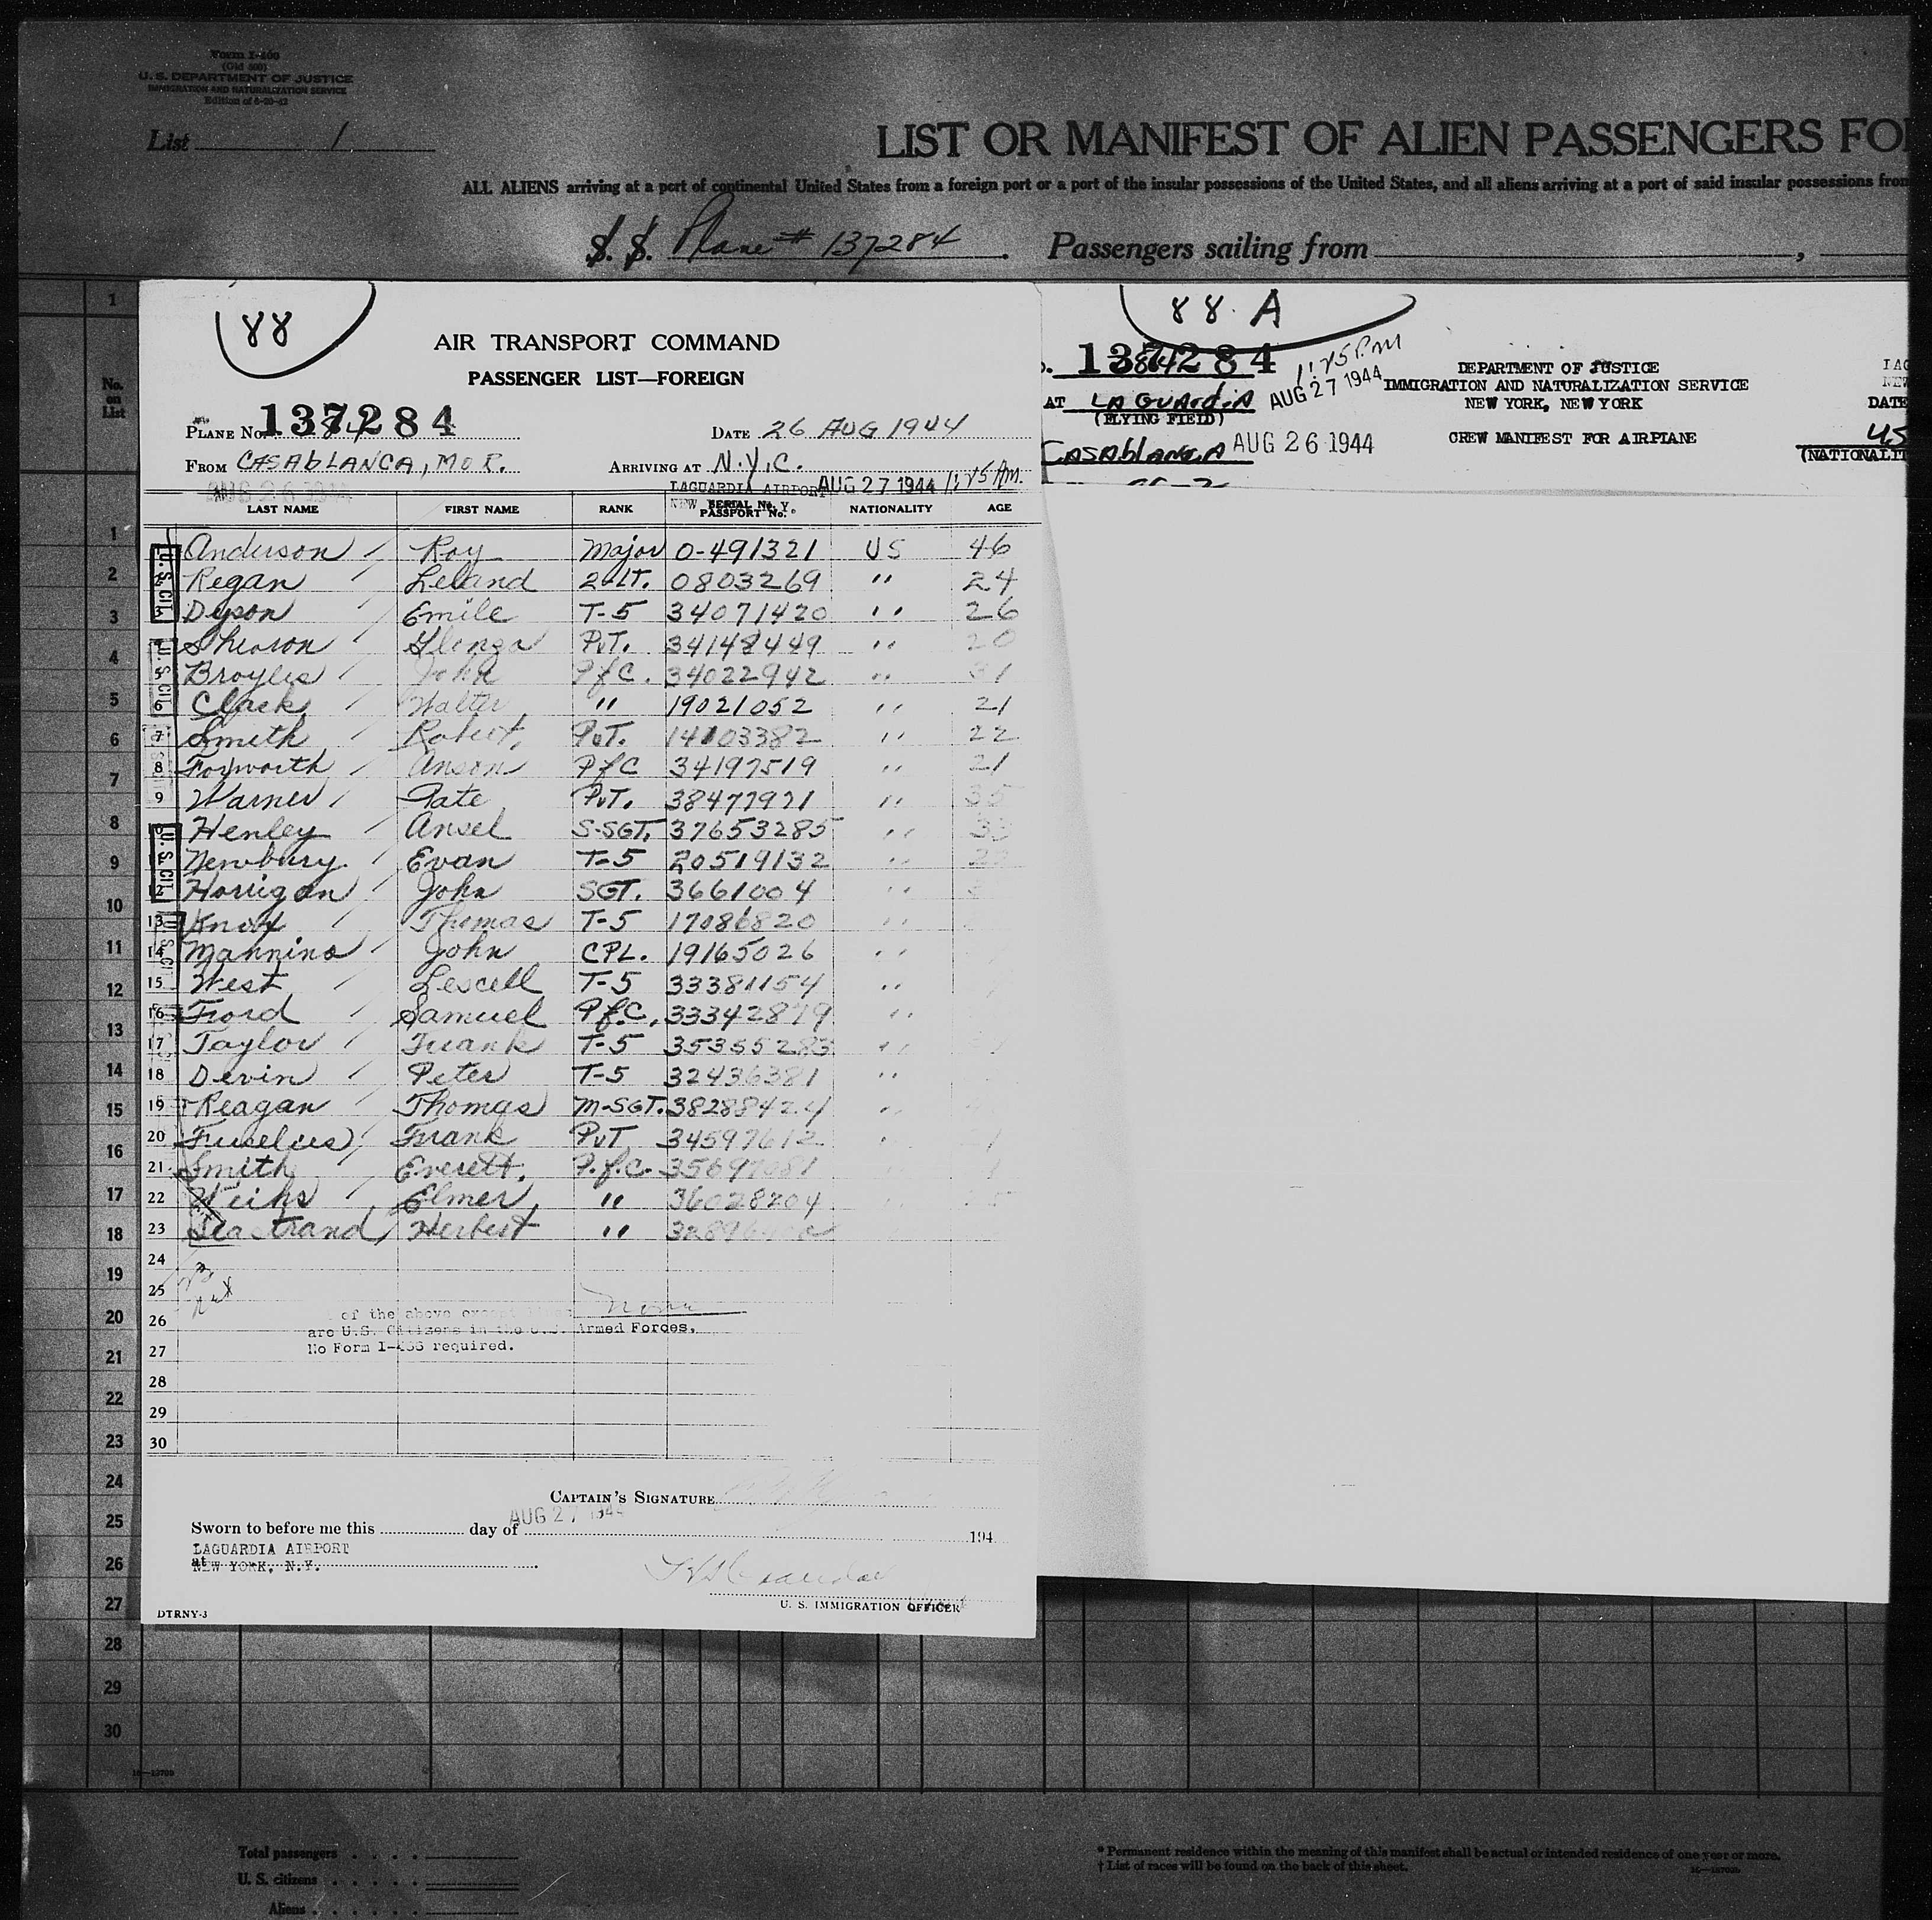 Form I-400
(Old 500)
U. S. DEPARTMENT OF JUSTICE
IMMIGRATION AND NATURALIZATION SERVICE
List 1
LIST OR MANIFEST OF ALIEN PASSENGERS FO
ALL ALIENS arriving at a port of continental United States from a foreign port or a port of the insular possessions of the United States, and all aliens arriving at a port of said insular possessions from
S. S. Plane # 137284 . Passengers sailing from ,
No. on List
88
AIR TRANSPORT COMMAND
PASSENGER LIST—FOREIGN
PLANE No. 137284
DATE 26 AUG 1944
FROM CASAblANCA, MOR.
ARRIVING AT N.Y.C.
AUG 26 1944
LAGUARDIA AIRPORT AUG 27 1944 11:25 AM.
LAST NAME FIRST NAME RANK SERIAL No. PASSPORT No. NATIONALITY AGE
Anderson Roy Major 0-491321 US 46
Regan Leland 2 LT. 0803269 " 24
Dyson Emile T-5 34071420 " 26
Pvt. 34148449 " 20
Broyles John Pfc. 34022942 " 31
6 Clack Walter " 19021052 " 21
7 Smith Robert, PvT. 14103382 " 22
8 Foxworth Anson Pfc 34197519 " 21
9 Warner Pate PvT. 38477971 " 35
Henley Ansel S-SGT. 37653285 " 33
Newbury Evan T-5 20519132 "
12 Horrigan John SGT. 3661004 "
13 Knox Thomas T-5 17086820 "
14 Mannino John CPL. 19165026 "
15 West Lescell T-5 33381154 "
16 Ford Samuel Pfc. 33342879 "
17 Taylor Frank T-5 35355283 "
18 Devin Peter T-5 32436381 "
19 Reagan Thomas M-SGT. 38288424 "
20 Fuselies Frank PvT 34597612
21 Smith Everett, P.f.c. 35697081
22 Weihs Elmer " 36028204
23 Seastrand Herbert "
24
25
26
27
28
29
30
of the above except lines None
are U.S. Citizens in the U.S. Armed Forces.
No Form I-466 required.
CAPTAIN'S SIGNATURE
AUG 27 1944
Sworn to before me this day of 194
LAGUARDIA AIRPORT
at NEW YORK, N.Y.
U. S. IMMIGRATION OFFICER
DTRNY-3
88 A
137284 11:25 P.M
AT LA GUARdiA AUG 27 1944
(FLYING FIELD)
CASAblANCA AUG 26 1944
DEPARTMENT OF JUSTICE
IMMIGRATION AND NATURALIZATION SERVICE
NEW YORK, NEW YORK
CREW MANIFEST FOR AIRPLANE
DATE
US
(NATIONALIT
1
2
3
4
5
6
7
8
9
10
11
12
13
14
15
16
17
18
19
20
21
22
23
24
25
26
27
28
29
30
Total passengers
U. S. citizens
Aliens
* Permanent residence within the meaning of this manifest shall be actual or intended residence of one year or more.
† List of races will be found on the back of this sheet.